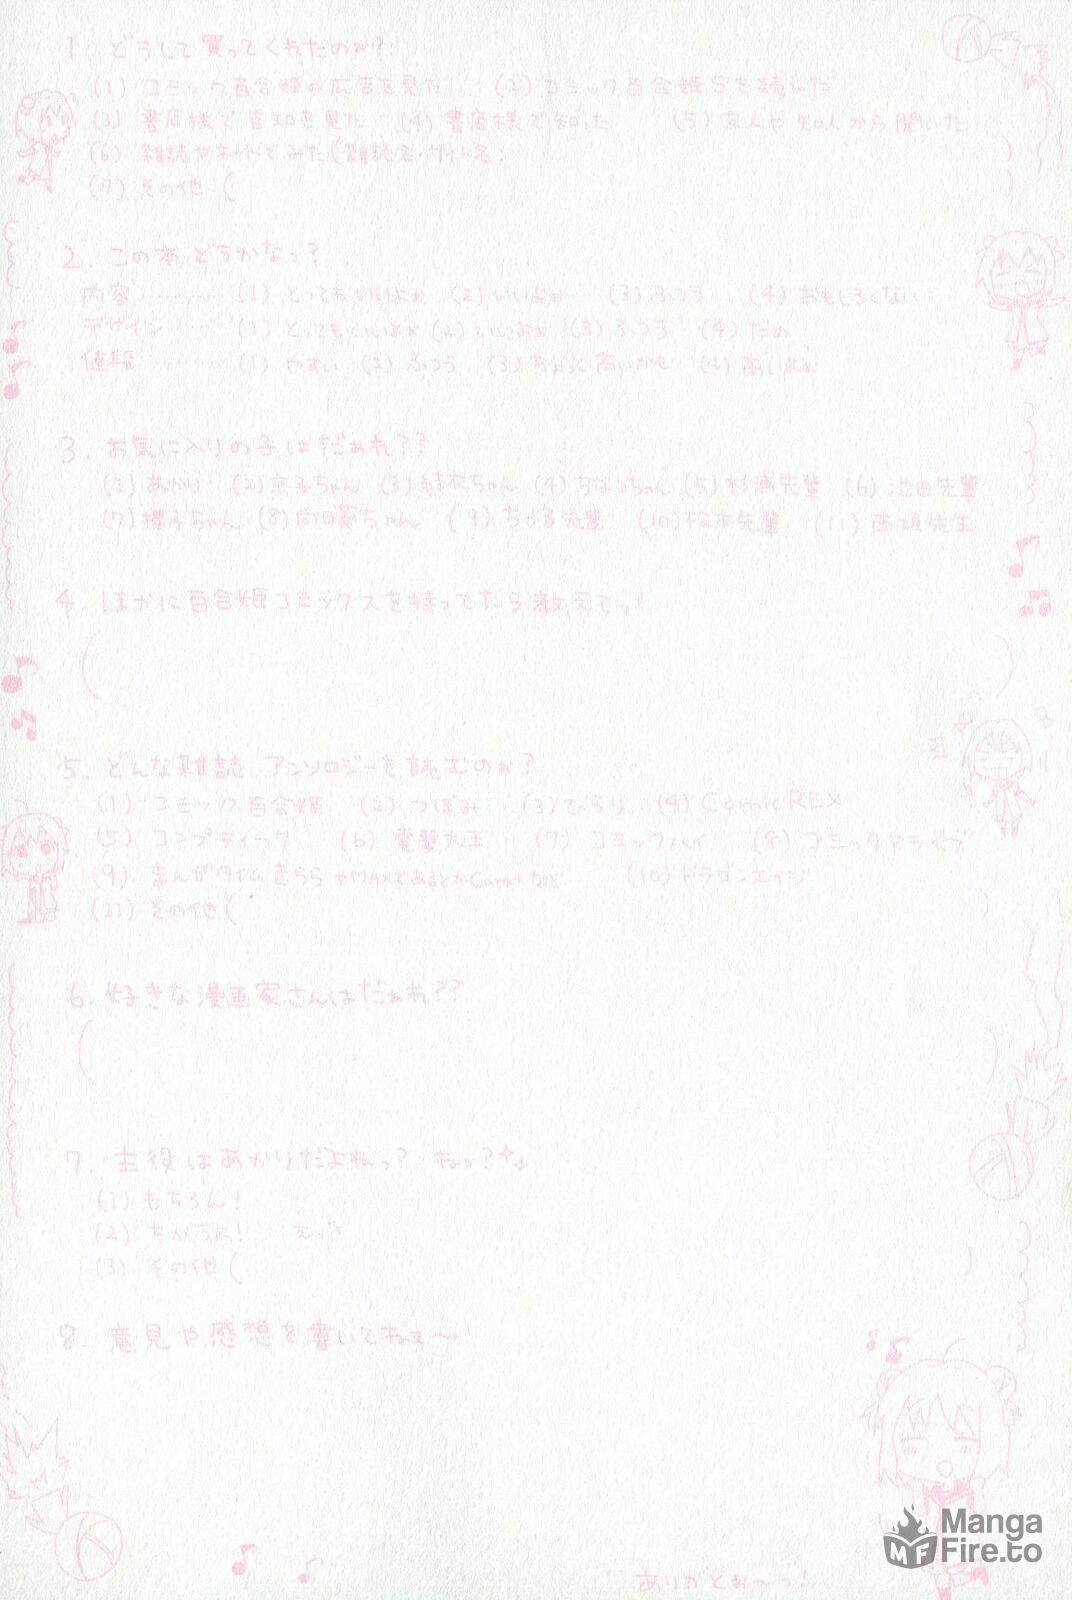 1 どうして買ってくれたのぉ?
(1) コミック百合姫の広告を見た (2) コミック百合姫Sを読んだ
(3) 書店様で告知を見た (4) 書店様で知った (5) 友人や知人から聞いた
(6) 雑誌や みた(雑誌名・サイト名: )
(7) その他 ( )
2. この本どうかなっ?
内容 ………… (1) とってもいいよぉ (2) いいよぉ (3) ふつう (4) おもしろくない
デザイン …… (1) とってもいいよぉ (2) いいよぉ (3) ふつう (4) だめ
値段 ………… (1) やすい (2) ふつう (3) ちょっと高いかも (4) 高いよぉ
3. お気に入りの子はだぁれ??
(1) あかり (2) 京子ちゃん (3) 結衣ちゃん (4) ちなつちゃん (5) 杉浦先輩 (6) 池田先輩
(7) 櫻子ちゃん (8) 向日葵ちゃん (9) ちとせ先輩 (10) 松本先輩 (11) 西垣先生
4. ほかに百合姫コミックスを持ってたら教えてっ!
( )
5. どんな雑誌 アンソロジーを読むのぉ?
(1) コミック百合姫 (2) つぼみ (3) ひらり (4) Comic REX
(5) コンプティーク (6) 電撃大王 (7) コミックハイ! (8) コミックアライブ
(9) まんがタイムきららやMAXであるとかCaratなど (10) ドラゴンエイジ
(11) その他 ( )
6. 好きな漫画家さんはだぁれ??
( )
7. 主役はあかりだよねっ? ねっ?
(1) もちろん!
(2) ちがうよ!
(3) その他 ( )
8. 意見や感想を書いてねぇ〜!
ありがとぉ〜っ!
Manga
Fire.to
MF